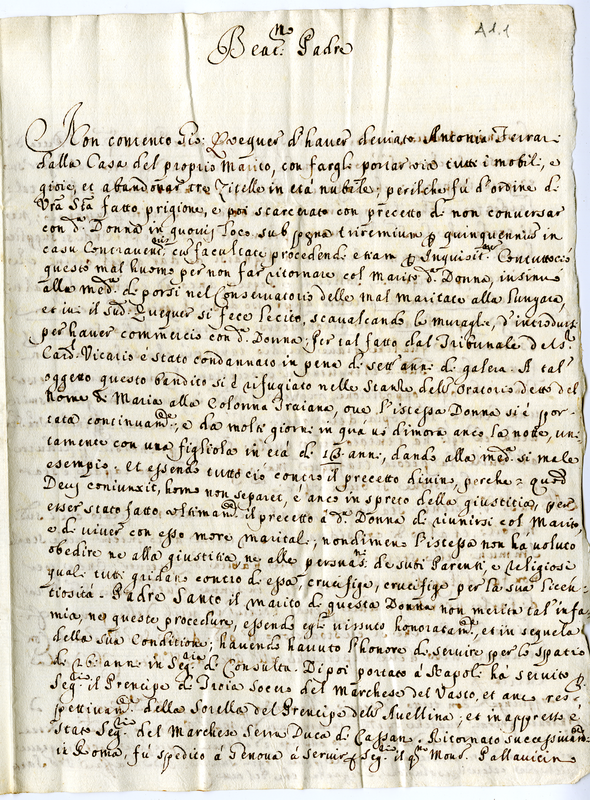 A1.1
Beat.mo Padre
Non contento Gio: Quequer d'haver deviato Antonia Ferrar:
dalla Casa del proprio Marito, con fargli portar via tutti i mobili, e
gioie, et abandonar tre Zitelle in età nubile, perilche fú d'ordine di
Vra Stà fatto prigione, e poi scarcerato con precetto di non conversar
con d.a Donna in quovis loco sub poena triremium p quinquennium in
casu Contravent.nis cum facultate procedendi etiam p Inquisit.nem Contuttociò
questo mal huomo per non far ritornare col Marito d.a Donna, insinuò
alla med.a di porsi nel Conservatorio delle mal maritate alla Lungara,
et ivi il sud.o Quequer si fece lecito, scavalcando le muraglie, d'introdursi
per haver commercio con d.a Donna; Per tal fatto dal Tribunale del S.r
Card. Vicario è stato condannato in pena di sett'anni di galera. A tal'
oggetto questo bandito si è rifugiato nelle Stanze dell'Oratorio detto del
Nome di Maria alla Colonna Traiana, ove l'istessa Donna si è por-
tata continuam.te, e da molti giorni in qua vi dimora anco la notte, uni-
tamente con una figliola in età di 13 anni, dando alla med.a si male
esempio. Et essendo tutto ciò contro il precetto divino, perche = quod
Deus coniunxit, homo non separet, e anco in spreto della giustitia, per
esser stato fatto ultimam.te il precetto à d.a Donna di riunirsi col Marito,
e di viver con esso more maritali; nondimeno l'istessa non hà voluto
obedire ne alla giustitia, ne alle persuas.ni de suoi Parenti, e Religiosi
quali tutti gridano contro di essa crucifige, crucifige per la sua licen-
tiosità. Padre Santo il marito di questa Donna non merita tal'infa-
mia, ne queste procedure, essendo egli vissuto honoratam.te, et in sequela
della sua Conditione; havendo havuto l'honore di servire per lo spatio
di 26 anni in Seg.ria di Consulta. Dipoi portato à Napoli hà servito p
Seg.rio il Prencipe di Troia Socero del Marchese del Vasto, et anc res-
pettivam.te della Sorella del Principe dell'Avellina; et in appresso è
stato Seg.rio del Marchese Serra Duca di Cassano. Ritornato successivam.te
in Roma, fú spedito à Genova à servir p Seg.rio il qm Mons. Pallavicin